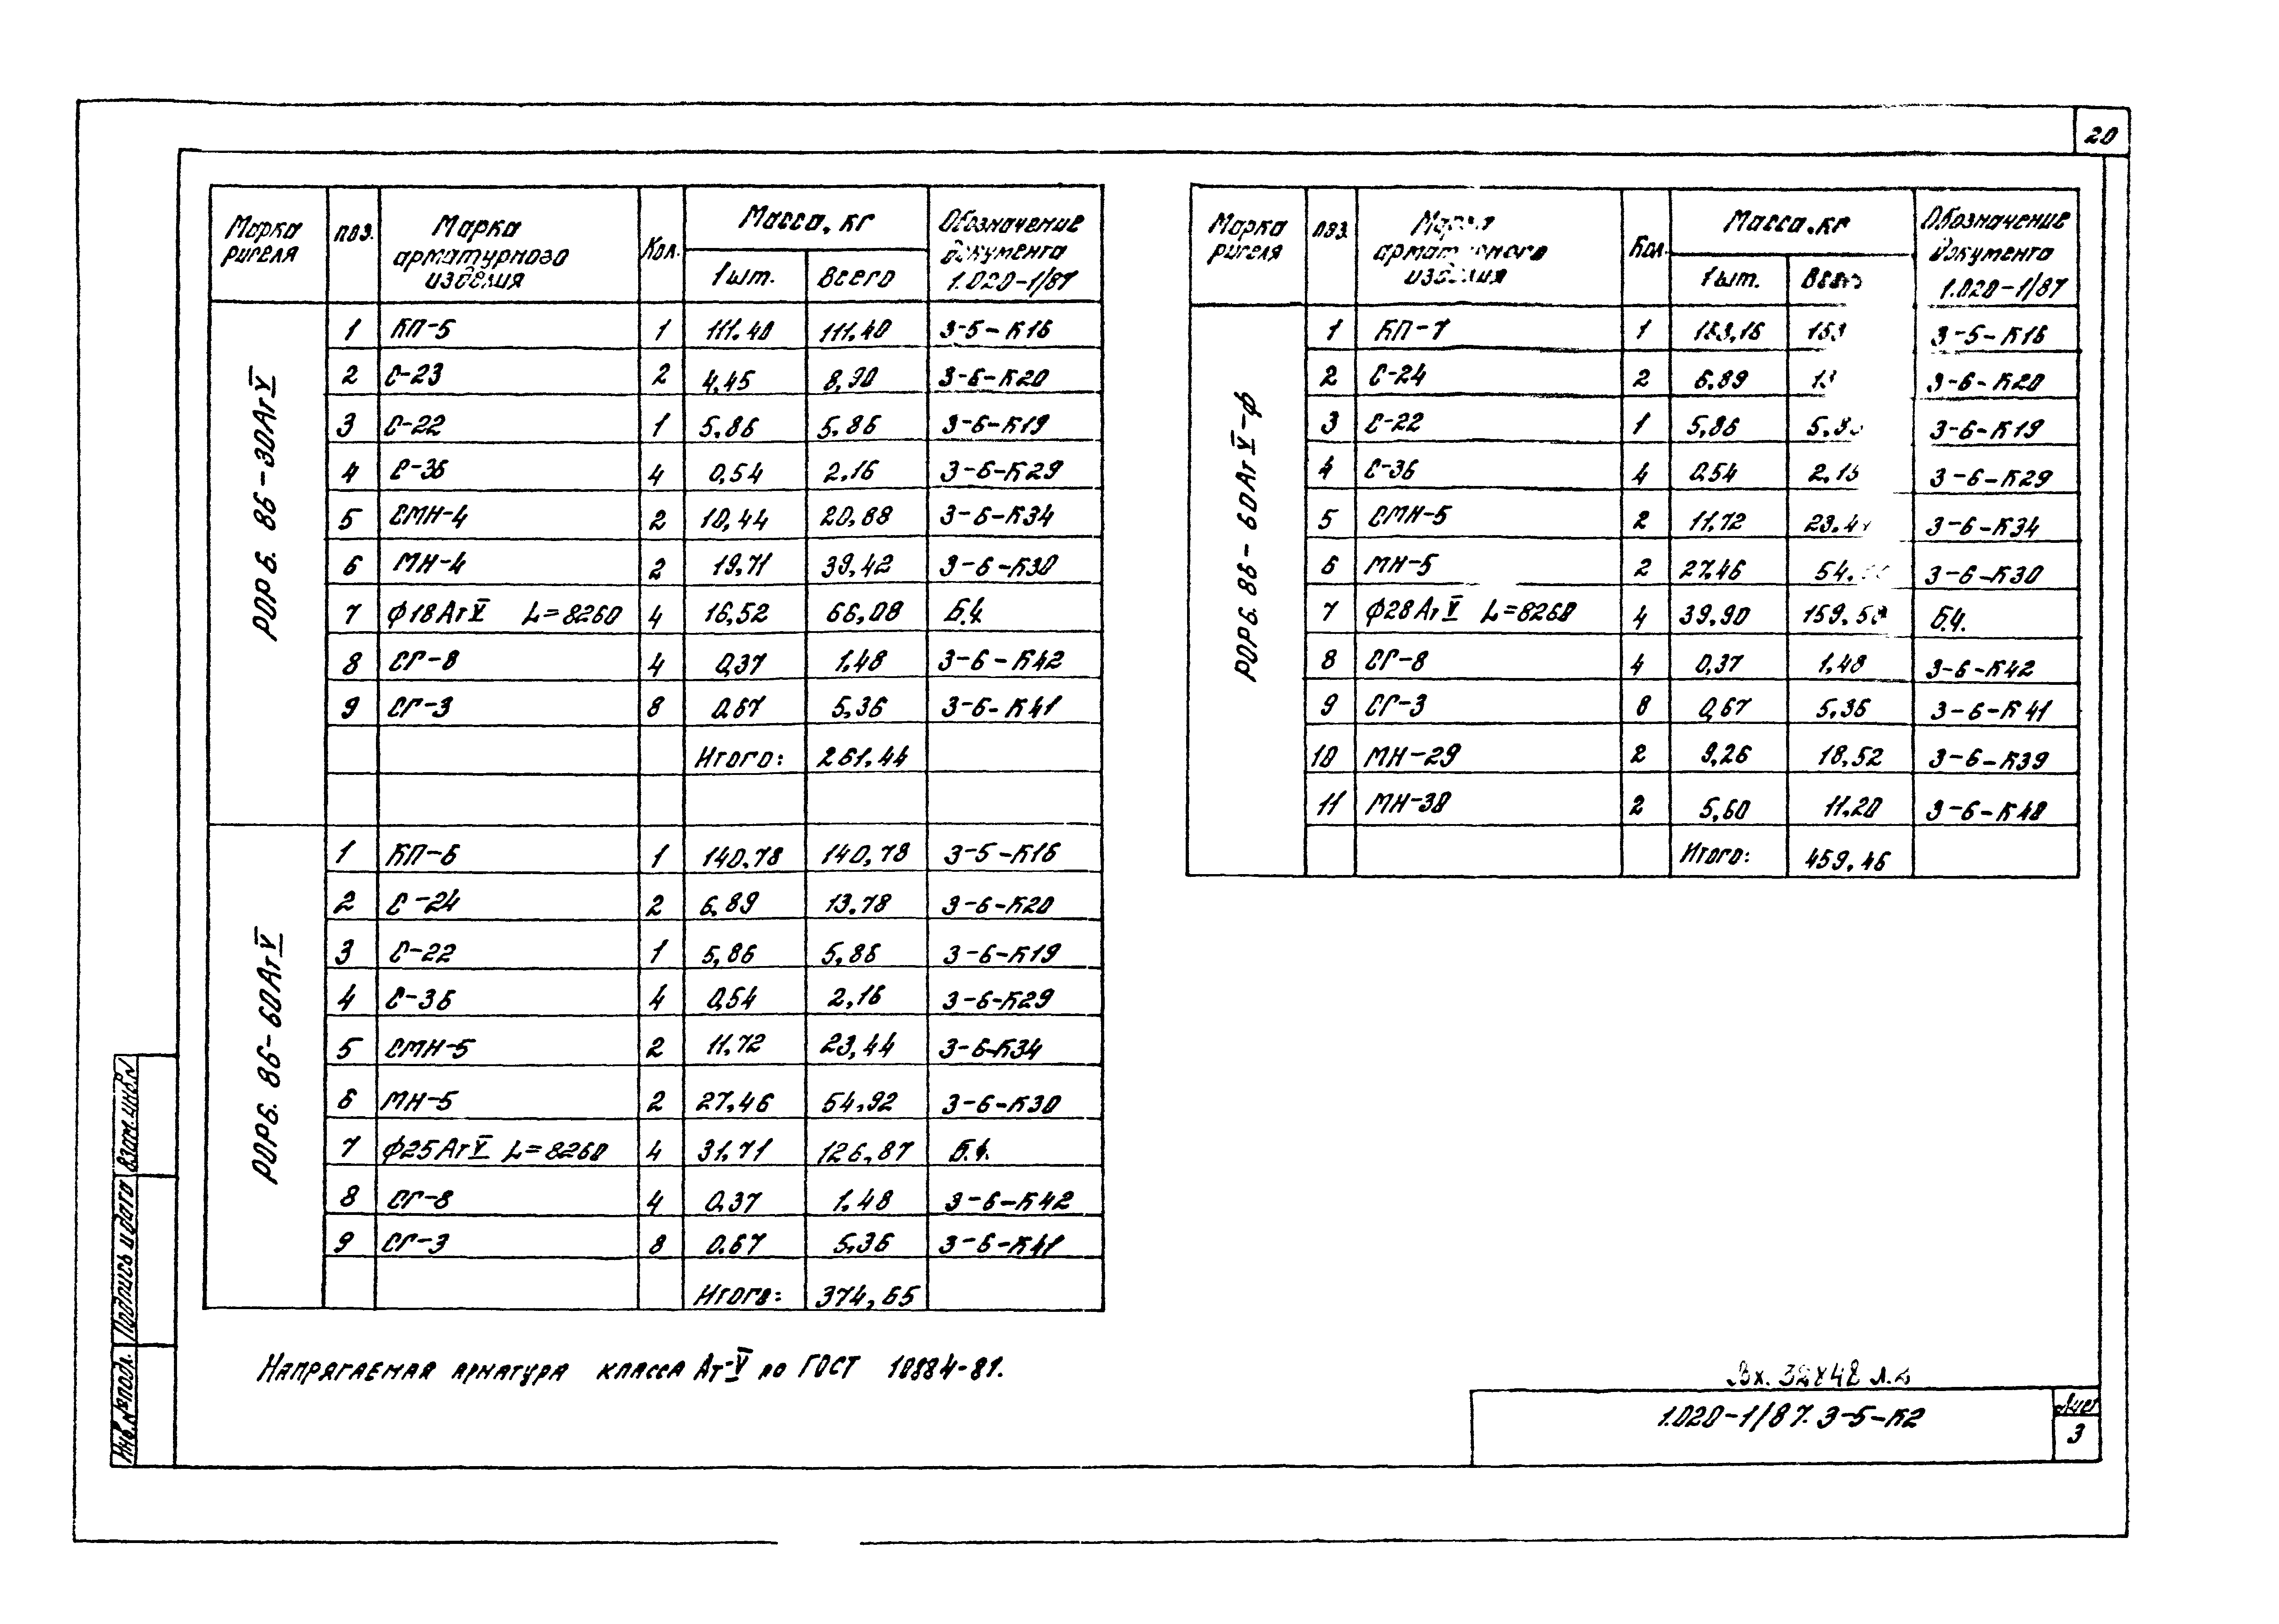 20
Марка ригеля | поз. | Марка арматурного изделия | Кол. | Масса, кг 1 шт. | Всего | Обозначение документа 1.020-1/87
РОР 6. 86-30АтV
1 | КП-5 | 1 | 111.40 | 111.40 | 3-5-К16
2 | С-23 | 2 | 4,45 | 8,90 | 3-6-К20
3 | С-22 | 1 | 5,86 | 5.86 | 3-6-К19
4 | С-36 | 4 | 0,54 | 2.16 | 3-6-К29
5 | СМН-4 | 2 | 10,44 | 20,88 | 3-6-К34
6 | МН-4 | 2 | 19,71 | 39,42 | 3-6-К30
7 | ф18АтV L=8260 | 4 | 16,52 | 66,08 | Б.Ч.
8 | СГ-8 | 4 | 0,37 | 1,48 | 3-6-К42
9 | СГ-3 | 8 | 0,67 | 5,36 | 3-6-К41
Итого: | 261,44
РОР6. 86-60АтV
1 | КП-6 | 1 | 140,78 | 140,78 | 3-5-К16
2 | С-24 | 2 | 6,89 | 13.78 | 3-6-К20
3 | С-22 | 1 | 5,86 | 5,86 | 3-6-К19
4 | С-36 | 4 | 0,54 | 2,16 | 3-6-К29
5 | СМН-5 | 2 | 11,72 | 23,44 | 3-6-К34
6 | МН-5 | 2 | 27,46 | 54,92 | 3-6-К30
7 | ф25АтV L=8260 | 4 | 31,71 | 126,87 | Б.Ч.
8 | СГ-8 | 4 | 0,37 | 1,48 | 3-6-К42
9 | СГ-3 | 8 | 0,67 | 5,36 | 3-6-К41
Итого: | 374,65
Марка ригеля | поз. | Марка арматурного изделия | Кол. | Масса, кг 1 шт. | Всего | Обозначение документа 1.020-1/87
РОР6. 86-60АтV-ф
1 | КП-7 | 1 | 163,16 | 3-5-К16
2 | С-24 | 2 | 6,89 | 3-6-К20
3 | С-22 | 1 | 5,86 | 3-6-К19
4 | С-36 | 4 | 0,54 | 2,16 | 3-6-К29
5 | СМН-5 | 2 | 11,72 | 3-6-К34
6 | МН-5 | 2 | 27,46 | 3-6-К30
7 | ф28АтV L=8260 | 4 | 39,90 | 3-6 Б.Ч.
8 | СГ-8 | 4 | 0,37 | 1,48 | 3-6-К42
9 | СГ-3 | 8 | 0,67 | 5,36 | 3-6-К41
10 | МН-29 | 2 | 9,26 | 18,52 | 3-6-К39
11 | МН-38 | 2 | 5,60 | 11,20 | 3-6-К48
Итого: | 459,46
Напрягаемая арматура класса Ат-V по ГОСТ 10884-81.
1.020-1/87. 3-5-К2
Лист
3
Взам.инв.№
Подпись и дата
Инв.№подл.